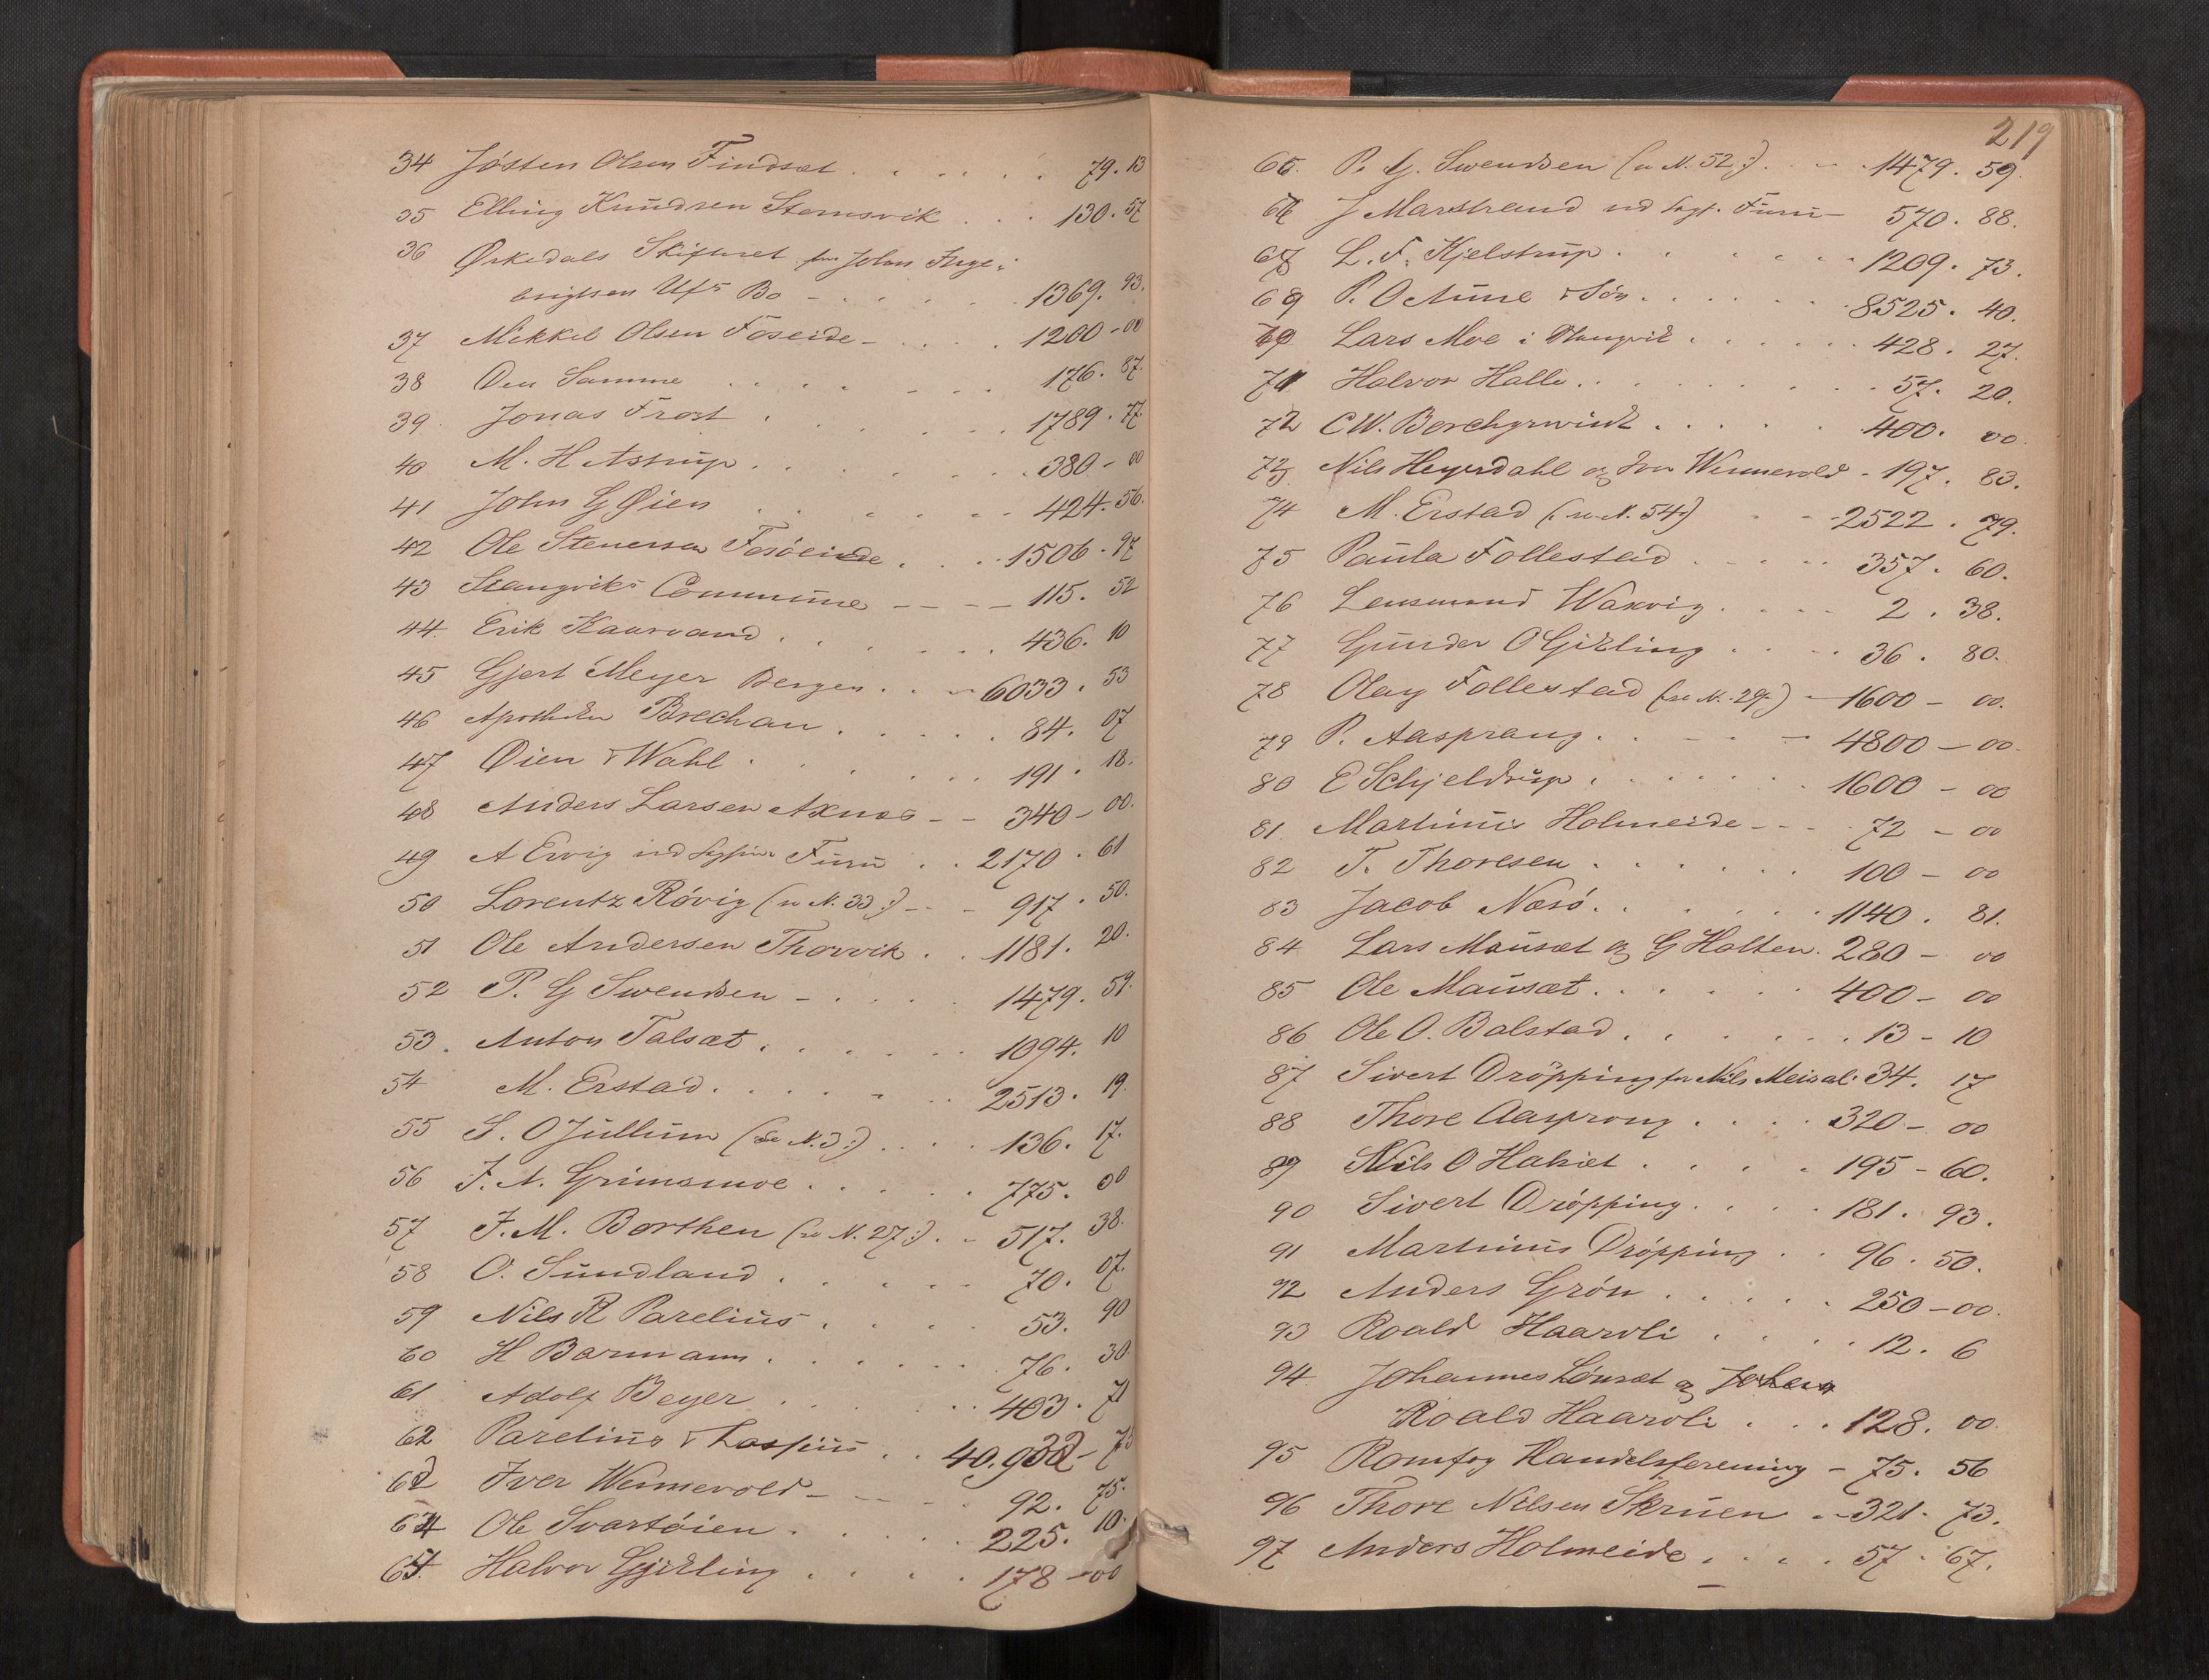 34 Jósten Olsen Findsæt . . . . . . 79. 13
35 Elling Knudsen Stemsvik . . . 130. 57
36 Ørkedals Skifteret for John Inge-
brigtsen Ufs Bo - . . . . . 1369. 93.
37 Mikkel Olsen Foseide - . . . . 1200 - 00
38 Den Samme . . . . . . . 176. 87.
39. Jonas Frost . . . . . . . 1789. 77.
40 M. H Astrup . . . . . . . 380 - 00
41 John G Øien . . . . . . . 424. 56.
42 Ole Stenersen Fosöeide . . . 1506. 97
43 Stangviks Commune - - - - 115. 52
44. Erik Kaarvand . . . . . . 436. 10
45 Gjert Meyer Bergen . . - 6033. 53
46 Apotheker Brechan . . . . . 84. 07
47 Øien & Wahl . . . . . . . 191. 18.
48 Anders Larsen Axnes - - 340 - 00.
49 A Ervig ved Sagfører Furu . . 2170. 61
50 Lorentz Róvig (se N. 33:) - - - 917. 50.
51 Ole Andersen Thorvik . . 1181. 20.
52 P. G Swendsen - . . . . 1479. 59.
53. Anton Talsæt . . . . . . 1094. 10
54 M. Erstad . . . . . . . 2513. 19.
55 S. O Jullum (se N. 3:) . . . . 136. 17.
56 J. N. Grimsmoe . . . . . . 775. 00
57 F. M. Borthen (se N. 27:) . . 517. 38.
58 O. Sundland . . . . . . 70. 07.
59 Nils R Parelius . . . . . 53. 90
60 H Barmann . . . . . . . 76. 30.
61 Adolf Beyer . . . . . . . 403. 71
62 Parelius & Lossius . . 40.932 - 75
63 Iver Wennevold - - - - 92. 75.
64 Ole Svartöien . . . . . 225. 10.
65. Halvor Gjikling . . . . . 178 - 00
219
66. P. G. Swendsen (se N. 52:) . - . 1479. 59.
67 J Marstrand ved Sagf. Furu - 570. 88.
68 L. F. Kjelstrup . . . . . . 1209. 73.
69 P. O Aune & Són . . . . . . 8525. 40.
70 Lars Moe i Stangvik . . . . . . 428. 27.
71 Halvor Halle . . . . . . . . . 57. 20.
72 C W. Borchgrevink . . . . . 400. 00
73 Nils Heyerdahl og Iver Wennevold - 197. 83.
74 M. Erstad (: se N. 54:) - - - 2522. 79.
75 Paula Follestad . . . . . 357. 60.
76 Lensmand Waxvig . . . . 2. 38.
77 Gunder O Gjikling . . . . 36. 80.
78 Olay Follestad (se N. 29:) - 1600 - 00.
79 P. Aasprang . . - - - 4800 - 00.
80 E Schjeldrup . . . . . . 1600 - 00
81 Martinus Holmeide - - - 72 - 00
82 T. Thoresen . . . . . . 100 - 00
83 Jacob Næsó . . . . . . 1140. 81.
84 Lars Mausæt og G Halten. 280 - 00
85 Ole Mausæt . . . . . . 400 - 00
86 Ole O. Bolstad . . . . . . . 13 - 10
87 Sivert Dröpping for Nils Meisal: 34. 17
88 Thore Aasprong . . . . 320 - 00
89 Nils O Halsæt . . . . 195 - 60.
90 Sivert Drópping . . . . 181. 93.
91 Martinus Drópping . . 96. 50.
92 Anders Grón . . . . . . 250 - 00.
93 Roald Haaroli . . . . 12. 6
94 Johannes Lónsæt og Johan
Roald Haaroli . . . 128. 00
95 Romfog Handelsforening - 75. 56
96 Thore Nilsen Skruen . - 321. 73.
97 Anders Holmeide . . . . 57. 67.